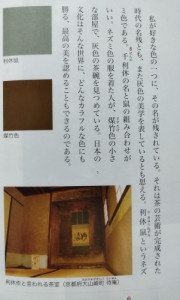 私が好きな色の一つに、その名が残されている。それは茶の芸術が完成された
時代の名残とも、また灰色の美学を表しているとも思える、利休鼠というネズ
ミ色である。千利休の名と鼠の組み合わせが
いい。ネズミと色の服を着た人が、煤竹色の小さ
な部屋で、灰色の茶碗を見つめている。日本の
文化はそんな世界に、どんなカラフルな色にも
勝る、最高の美を認めることもできるのである。
利休鼠
煤竹色
利休作と言われる茶室(京都府大山崎町 待庵)